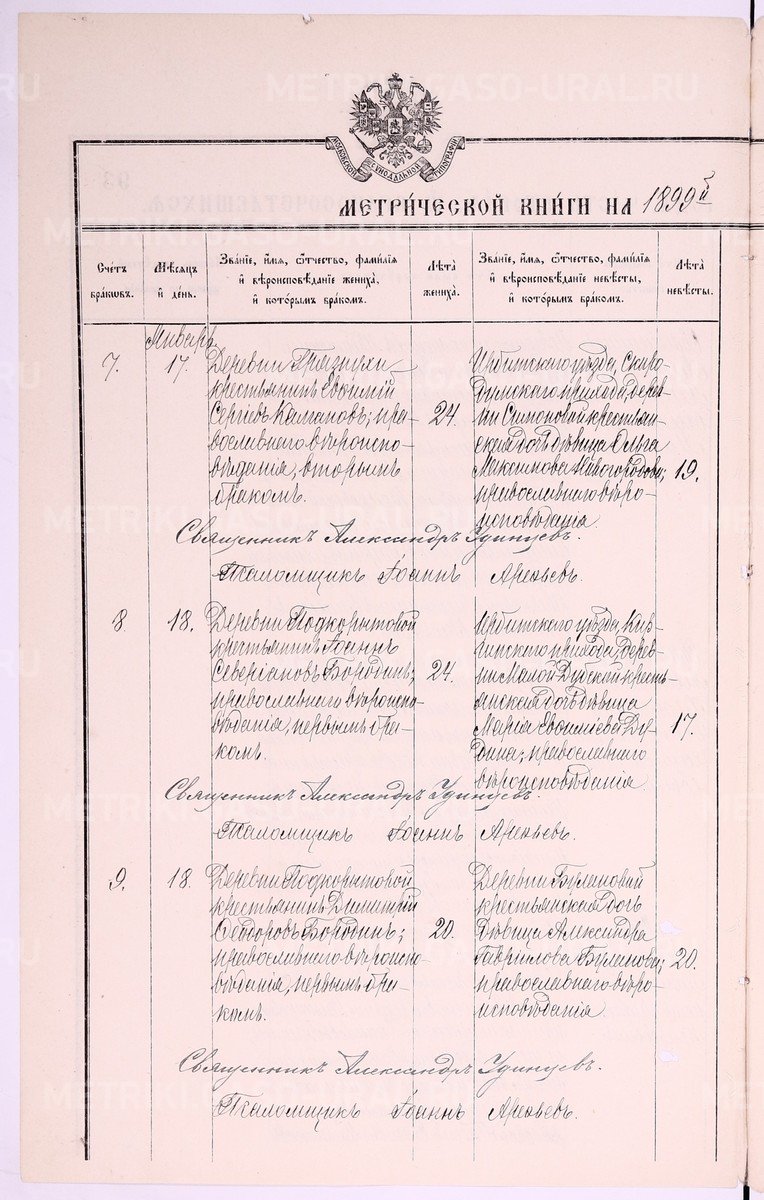 METRIKI.GASO-URAL.RU
МОСКОВСКОЙ СѴНОДАЛЬНОЙ ТИПОГРАФІИ
МЕТРИ́ЧЕСКОЙ КНИ́ГИ НА 1899й
Сче́тъ бра́ковъ.
Мѣ́сяцъ и҆ де́нь.
Зва́нїе, и҆́мя, ѻ҆́тчество, фами́лїя
и҆ вѣроисповѣ́данїе жениха̀,
и҆ кото́рымъ бра́комъ.
Лѣ́та жениха̀.
Зва́нїе, и҆́мя, ѻ҆́тчество, фами́лїя
и҆ вѣроисповѣ́данїе невѣ́сты,
и҆ кото́рымъ бра́комъ.
Лѣ́та невѣ́сты.
Январь
7.
17.
Деревни Грязнухи
крестьянинъ Евѳимій
Сергіевъ Калмановъ; пра-
вославнаго вѣроиспо-
вѣданія, вторымъ
бракомъ.
24.
Ирбитскаго уѣзда, Скоро-
думскаго прихода, дерев-
ни Симоновой крестьян-
ская дочь дѣвица Ольга
Максимова
православнаго вѣро-
исповѣданія
19.
Священникъ Александръ Удинцевъ.
Псаломщикъ Іоаннъ Арефьевъ.
8
18.
Деревни Подкорытовой
крестьянинъ Іоаннъ
Северіановъ Бородинъ;
православнаго вѣроиспо-
вѣданія, первымъ бра-
комъ.
24.
Ирбитскаго уѣзда, Кир-
гинскаго прихода, дерев-
ни Малой Дубской кресть-
янская дочь дѣвица
Марія Евѳиміева Ду-
дина; православнаго
вѣроисповѣданія.
17.
Священникъ Александръ Удинцевъ.
Псаломщикъ Іоаннъ Арефьевъ.
9.
18.
Деревни Подкорытовой
крестьянинъ Димитрій
Ѳеодоровъ Бородинъ;
православнаго вѣроиспо-
вѣданія, первымъ бра-
комъ.
20.
Деревни Булановой
крестьянская дочь
дѣвица Александра
Гаврилова Буланова;
православнаго вѣро-
исповѣданія.
20.
Священникъ Александръ Удинцевъ.
Псаломщикъ Іоаннъ Арефьевъ.